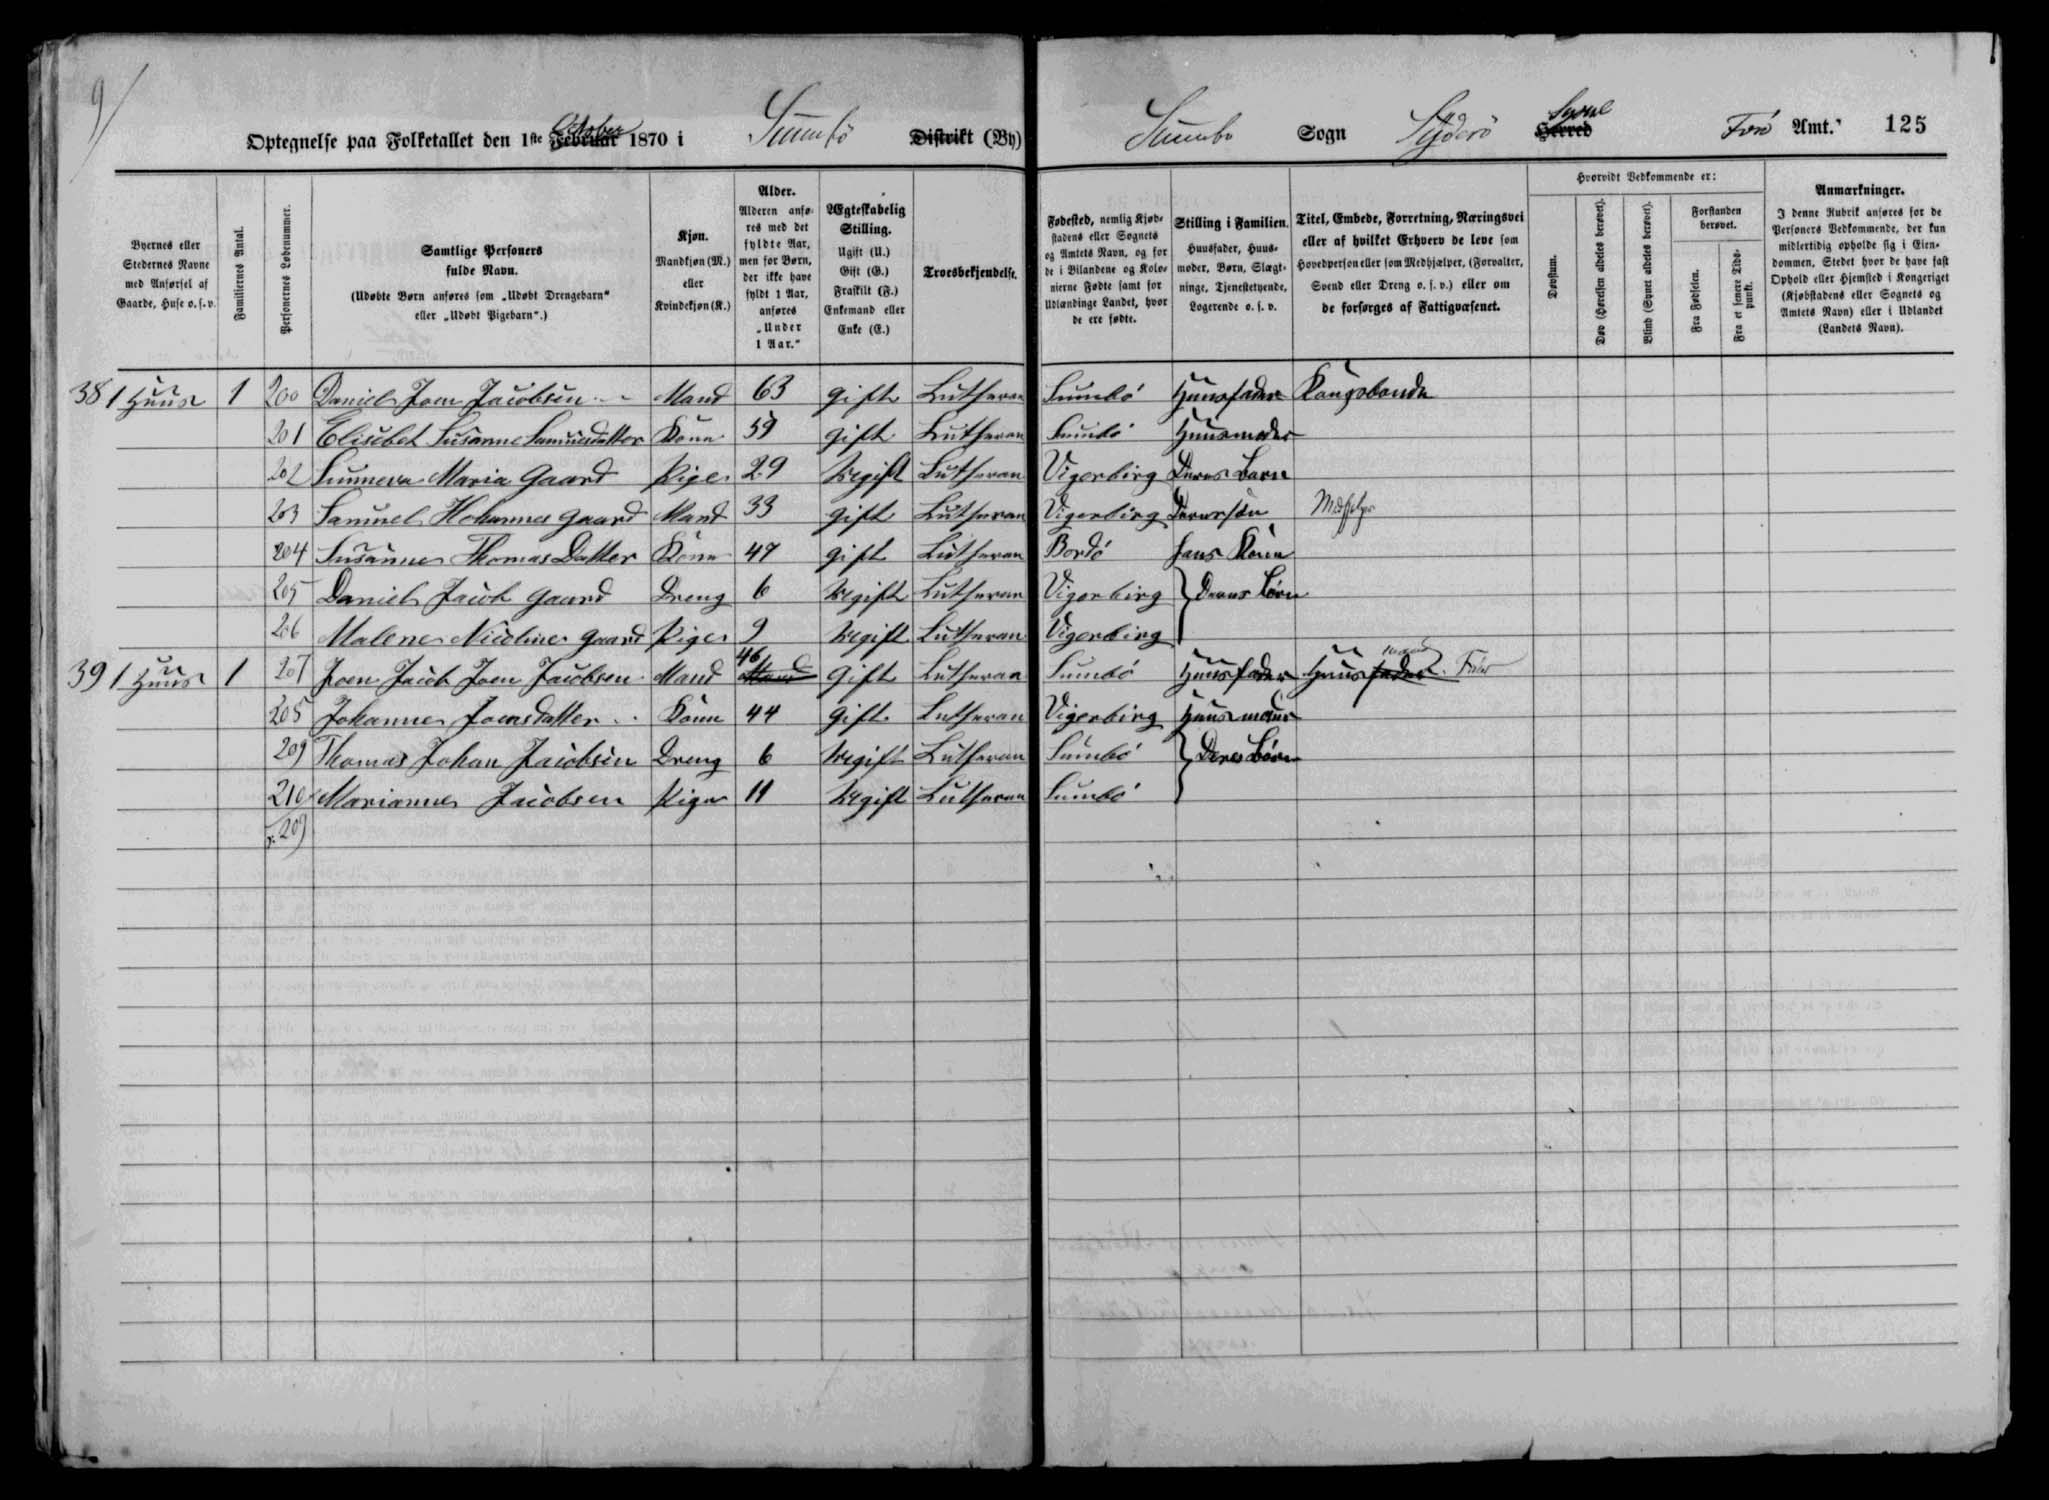 9/
Optegnelse paa Folketallet den 1ste Februar October 1870 i Sumbö Distrikt (By)
Sumbø Sogn Syderö Herred Syssel Farö Amt. 125
Byernes eller Stedernes Navne med Anførsel af Gaarde, Huse o. s. v.
Familiernes Antal.
Personernes Løbenummer.
Samtlige Personers fulde Navn.
(Udøbte Børn anføres som „Udøbt Drengebarn“ eller „Udøbt Pigebarn“.)
Kjøn. Mandkjøn (M.) eller Kvindekjøn (K.)
Alder. Alderen anføres med det fyldte Aar, men for Børn, der ikke have fyldt 1 Aar, anføres „Under 1 Aar.“
Ægteskabelig Stilling. Ugift (U.) Gift (G.) Fraskilt (F.) Enkemand eller Enke (E.)
Troesbekjendelse.
Fødested, nemlig Kjøbstadens eller Sognets og Amtets Navn, og for de i Bilandene og Kolonierne Fødte samt for Udlændinge Landet, hvor de ere fødte.
Stilling i Familien. Huusfader, Huusmoder, Børn, Slægtninge, Tjenestetyende, Logerende o. s. v.
Titel, Embede, Forretning, Næringsvei eller af hvilket Erhverv de leve som Hovedperson eller som Medhjælper, (Forvalter, Svend eller Dreng o. s. v.) eller om de forsørges af Fattigvæsenet.
Hvorvidt Vedkommende er:
Døvstum.
Døv (Hørelsen aldeles berøvet).
Blind (Synet aldeles berøvet).
Forstanden berøvet.
Fra Fødselen.
Fra et senere Tidspunkt.
Anmærkninger.
I denne Rubrik anføres for de Personers Vedkommende, der kun midlertidig opholde sig i Eiendommen, Stedet hvor de have fast Ophold eller Hjemsted i Kongeriget (Kjøbstadens eller Sognets og Amtets Navn) eller i Udlandet (Landets Navn).
38 1 Huus 1 200 Daniel Joen Jacobsen Mand 63 gift Lutheran Sumbö Huusfader Kongsbonde
201 Elisebet Susanne Samuelsdatter Kone 59 gift Lutheran Sumbö Huusmoder
202 Sunneva Maria Gaard Pige 29 Uegift Lutheran Vigerbirg Deres Barn
203 Samuel Johannes Gaard Mand 33 gift Lutheran Vigerbirg Deres sön
204 Susanne Thomas Datter Kone 47 gift Lutheran Bordö hans Kone
205 Daniel Jacob Gaard Dreng 6 Uegift Lutheran Vigerbirg Deres Börn
206 Malene Nicoline Gaard Pige 9 Uegift Lutheran Vigerbirg
39 1 Huus 1 207 Joen Jacob Joen Jacobsen Mand Mand 46 Gift Lutheran Sumbö Huusfader Huusfader mand
205 Johanne Joensdatter Kone 44 gift Lutheran Vigerbirg Huusmoder
209 Thomas Johan Jacobsen Dreng 6 Uegift Lutheran Sumbö Deres Börn
210 Marianne Jacobsen Pige 11 Uegift Lutheran Sumbö
209